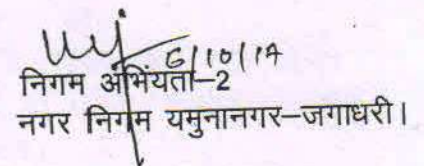 6/10/17
निगम अभियंता-2
नगर निगम यमुनानगर-जगाधरी।